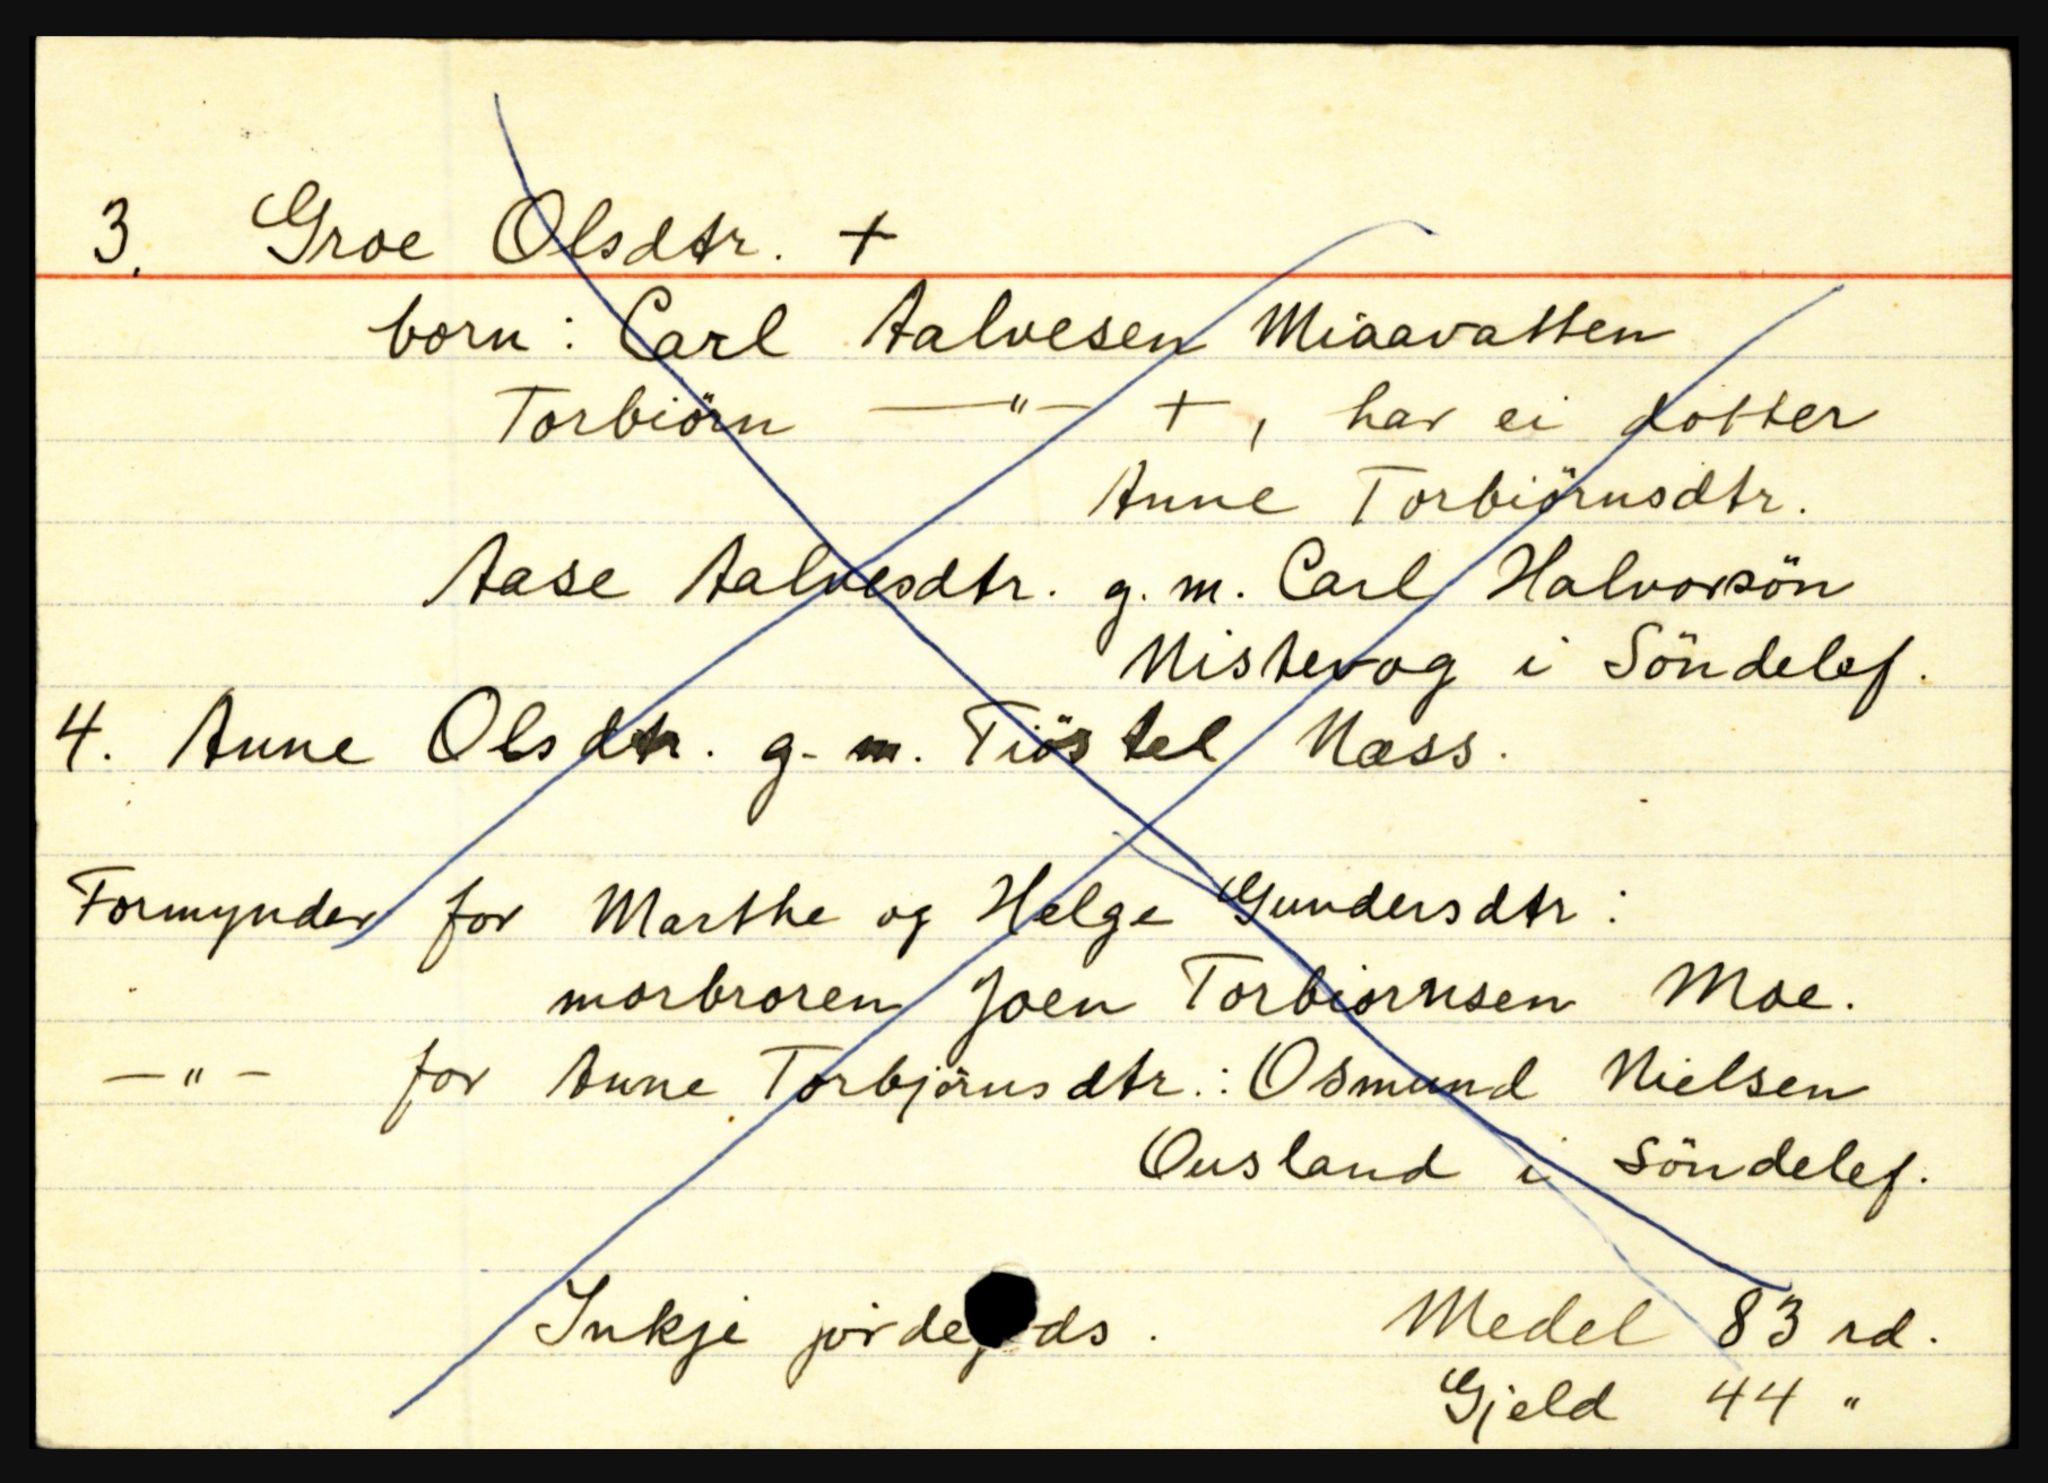 3. Groe Olsdtr. +
born: Carl Aalvesen Miaavatten
Torbiörn —"— +, har ei dotter
Anne Torbiörnsdtr.
Aase Aalvesdtr. g.m. Carl Halvorsön
Nistevog i Söndelef.
4. Anne Olsdtr. g.m. Tiöstel Næss.
Formynder for Marthe og Helge Gundersdtr:
morbroren Joen Torbiornsen Moe.
—"— for Anne Torbjörnsdtr.: Osmund Nielsen
Ousland i Söndelef.
Inkje jordegods. Medel 83 rd.
Gjeld 44 "